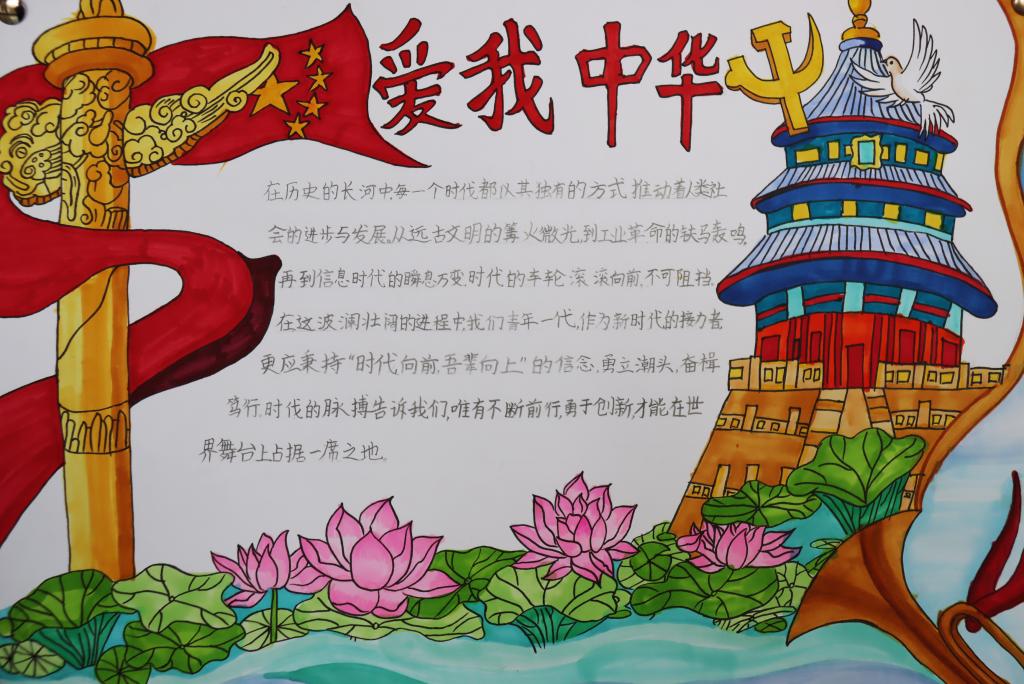 爱我中华
在历史的长河中,每一个时代都以其独有的方式推动着人类社
会的进步与发展。从远古文明的篝火微光,到工业革命的铁马轰鸣,
再到信息时代的瞬息万变,时代的车轮滚滚向前,不可阻挡。
在这波澜壮阔的进程中,我们青年一代,作为新时代的接力者
更应秉持“时代向前,吾辈向上”的信念,勇立潮头,奋楫
笃行,时代的脉搏告诉我们,唯有不断前行,勇于创新,才能在世
界舞台上占据一席之地。